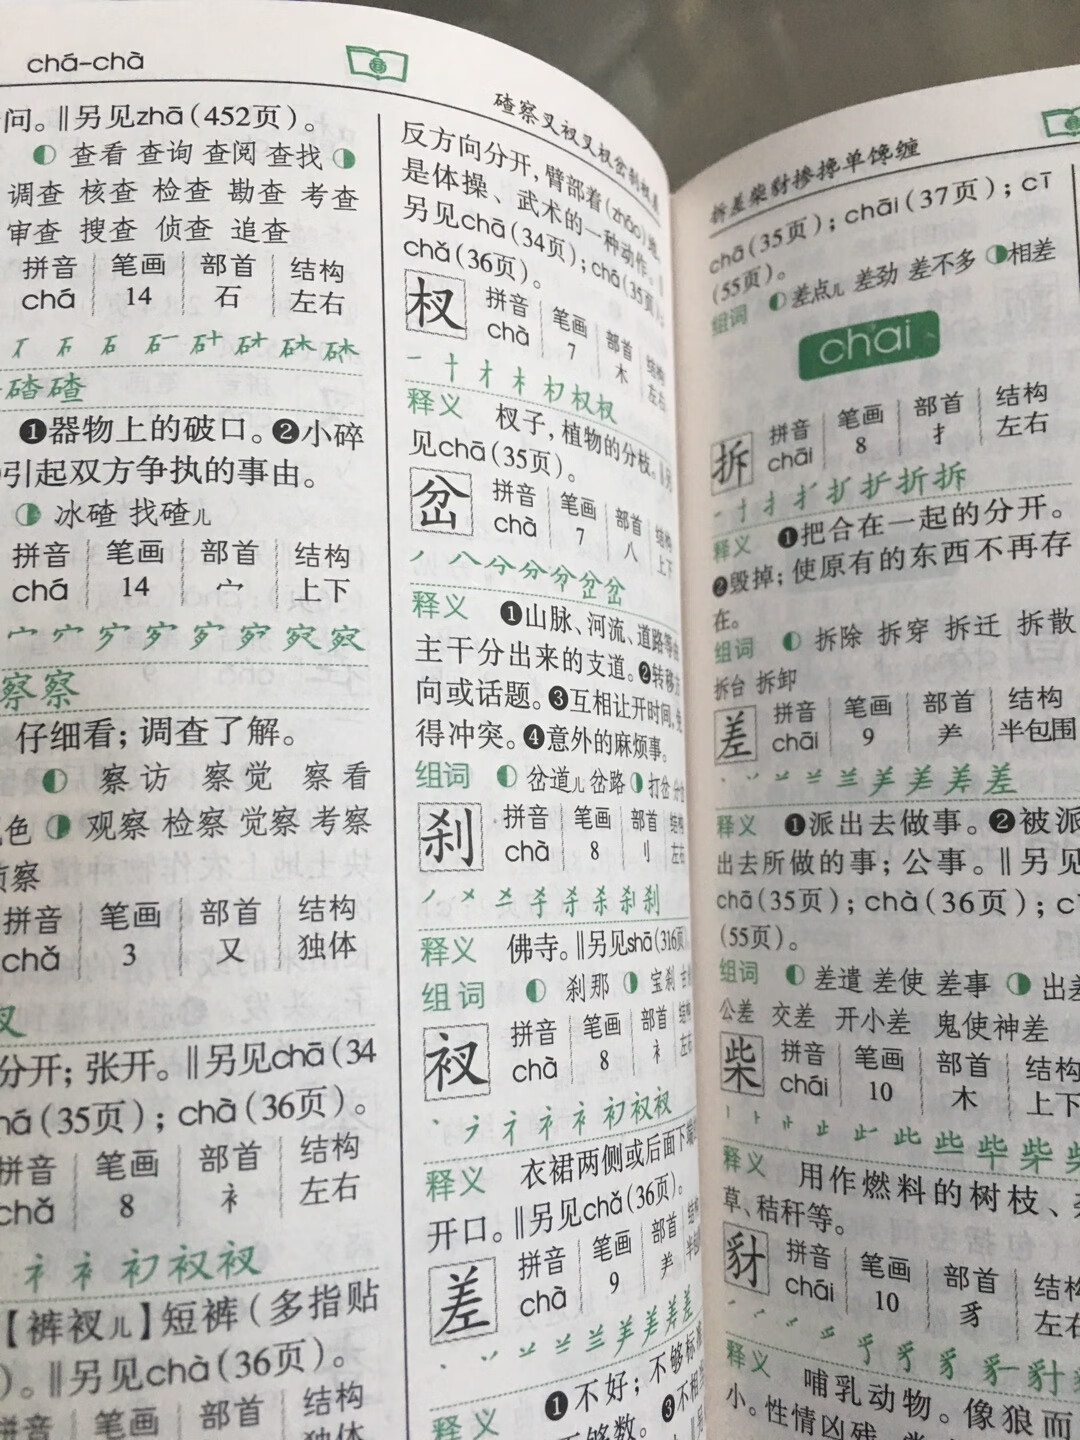 chá-chà
问。‖另见zhā(452页)。
查看 查询 查阅 查找
调查 核查 检查 勘查 考查
审查 搜查 侦查 追查
拼音 笔画 部首 结构
chá 14 石 左右
碴碴
❶器物上的破口。❷小碎
引起双方争执的事由。
冰碴 找碴儿
拼音 笔画 部首 结构
chá 14 宀 上下
察察
仔细看；调查了解。
察访 察觉 察看
色 观察 检察 觉察 考察
侦察
拼音 笔画 部首 结构
chǎ 3 又 独体
分开；张开。‖另见chā(34
chá(35页)；chà(36页)。
拼音 笔画 部首 结构
chǎ 8 衤 左右
衤 衤 初 衩 衩
【裤衩儿】短裤(多指贴
)。‖另见chà(36页)。
拼音 笔画 部首 结构
独体
碴察叉衩叉杈岔刹衩差
反方向分开，臂部着(zháo)地，
是体操、武术的一种动作。‖
另见chā(34页)；chá(35页)；
chǎ(36页)。
杈 拼音 笔画 部首 结构
chà 7 木 左右
一 十 才 木 杈 杈
释义 杈子，植物的分枝。‖另
见chā(35页)。
岔 拼音 笔画 部首 结构
chà 7 八 上下
释义 ❶山脉、河流、道路等由
主干分出来的支道。❷转移
向或话题。❸互相让开时间，免
得冲突。❹意外的麻烦事。
组词 岔道儿 岔路 打岔
刹 拼音 笔画 部首 结构
chà 8 刂 左右
释义 佛寺。‖另见shā(316页)。
组词 刹那 宝刹
衩 拼音 笔画 部首 结构
chà 8 衤 左右
释义 衣裙两侧或后面下端
开口。‖另见chǎ(36页)。
差 拼音 笔画 部首
chà 9 羊 半包
释义 ❶不好；不够标准
不够数。❸不相
拆差柴豺掺搀单馋缠
chā(35页)；chāi(37页)；cī
(55页)。
组词 差点儿 差劲 差不多 相差
chai
拆 拼音 笔画 部首 结构
chāi 8 扌 左右
释义 ❶把合在一起的分开。
❷毁掉；使原有的东西不再存
在。
组词 拆除 拆穿 拆迁 拆散
拆台 拆卸
差 拼音 笔画 部首 结构
chāi 9 羊 半包围
释义 ❶派出去做事。❷被派
出去所做的事；公事。‖另见
chā(35页)；chà(36页)；cī
(55页)。
组词 差遣 差使 差事 出差
公差 交差 开小差 鬼使神差
柴 拼音 笔画 部首 结构
chái 10 木 上下
释义 用作燃料的树枝、杂
草、秸秆等。
豺 拼音 笔画 部首 结构
chái 10 豸 左右
释义 哺乳动物。像狼而
小。性情凶残